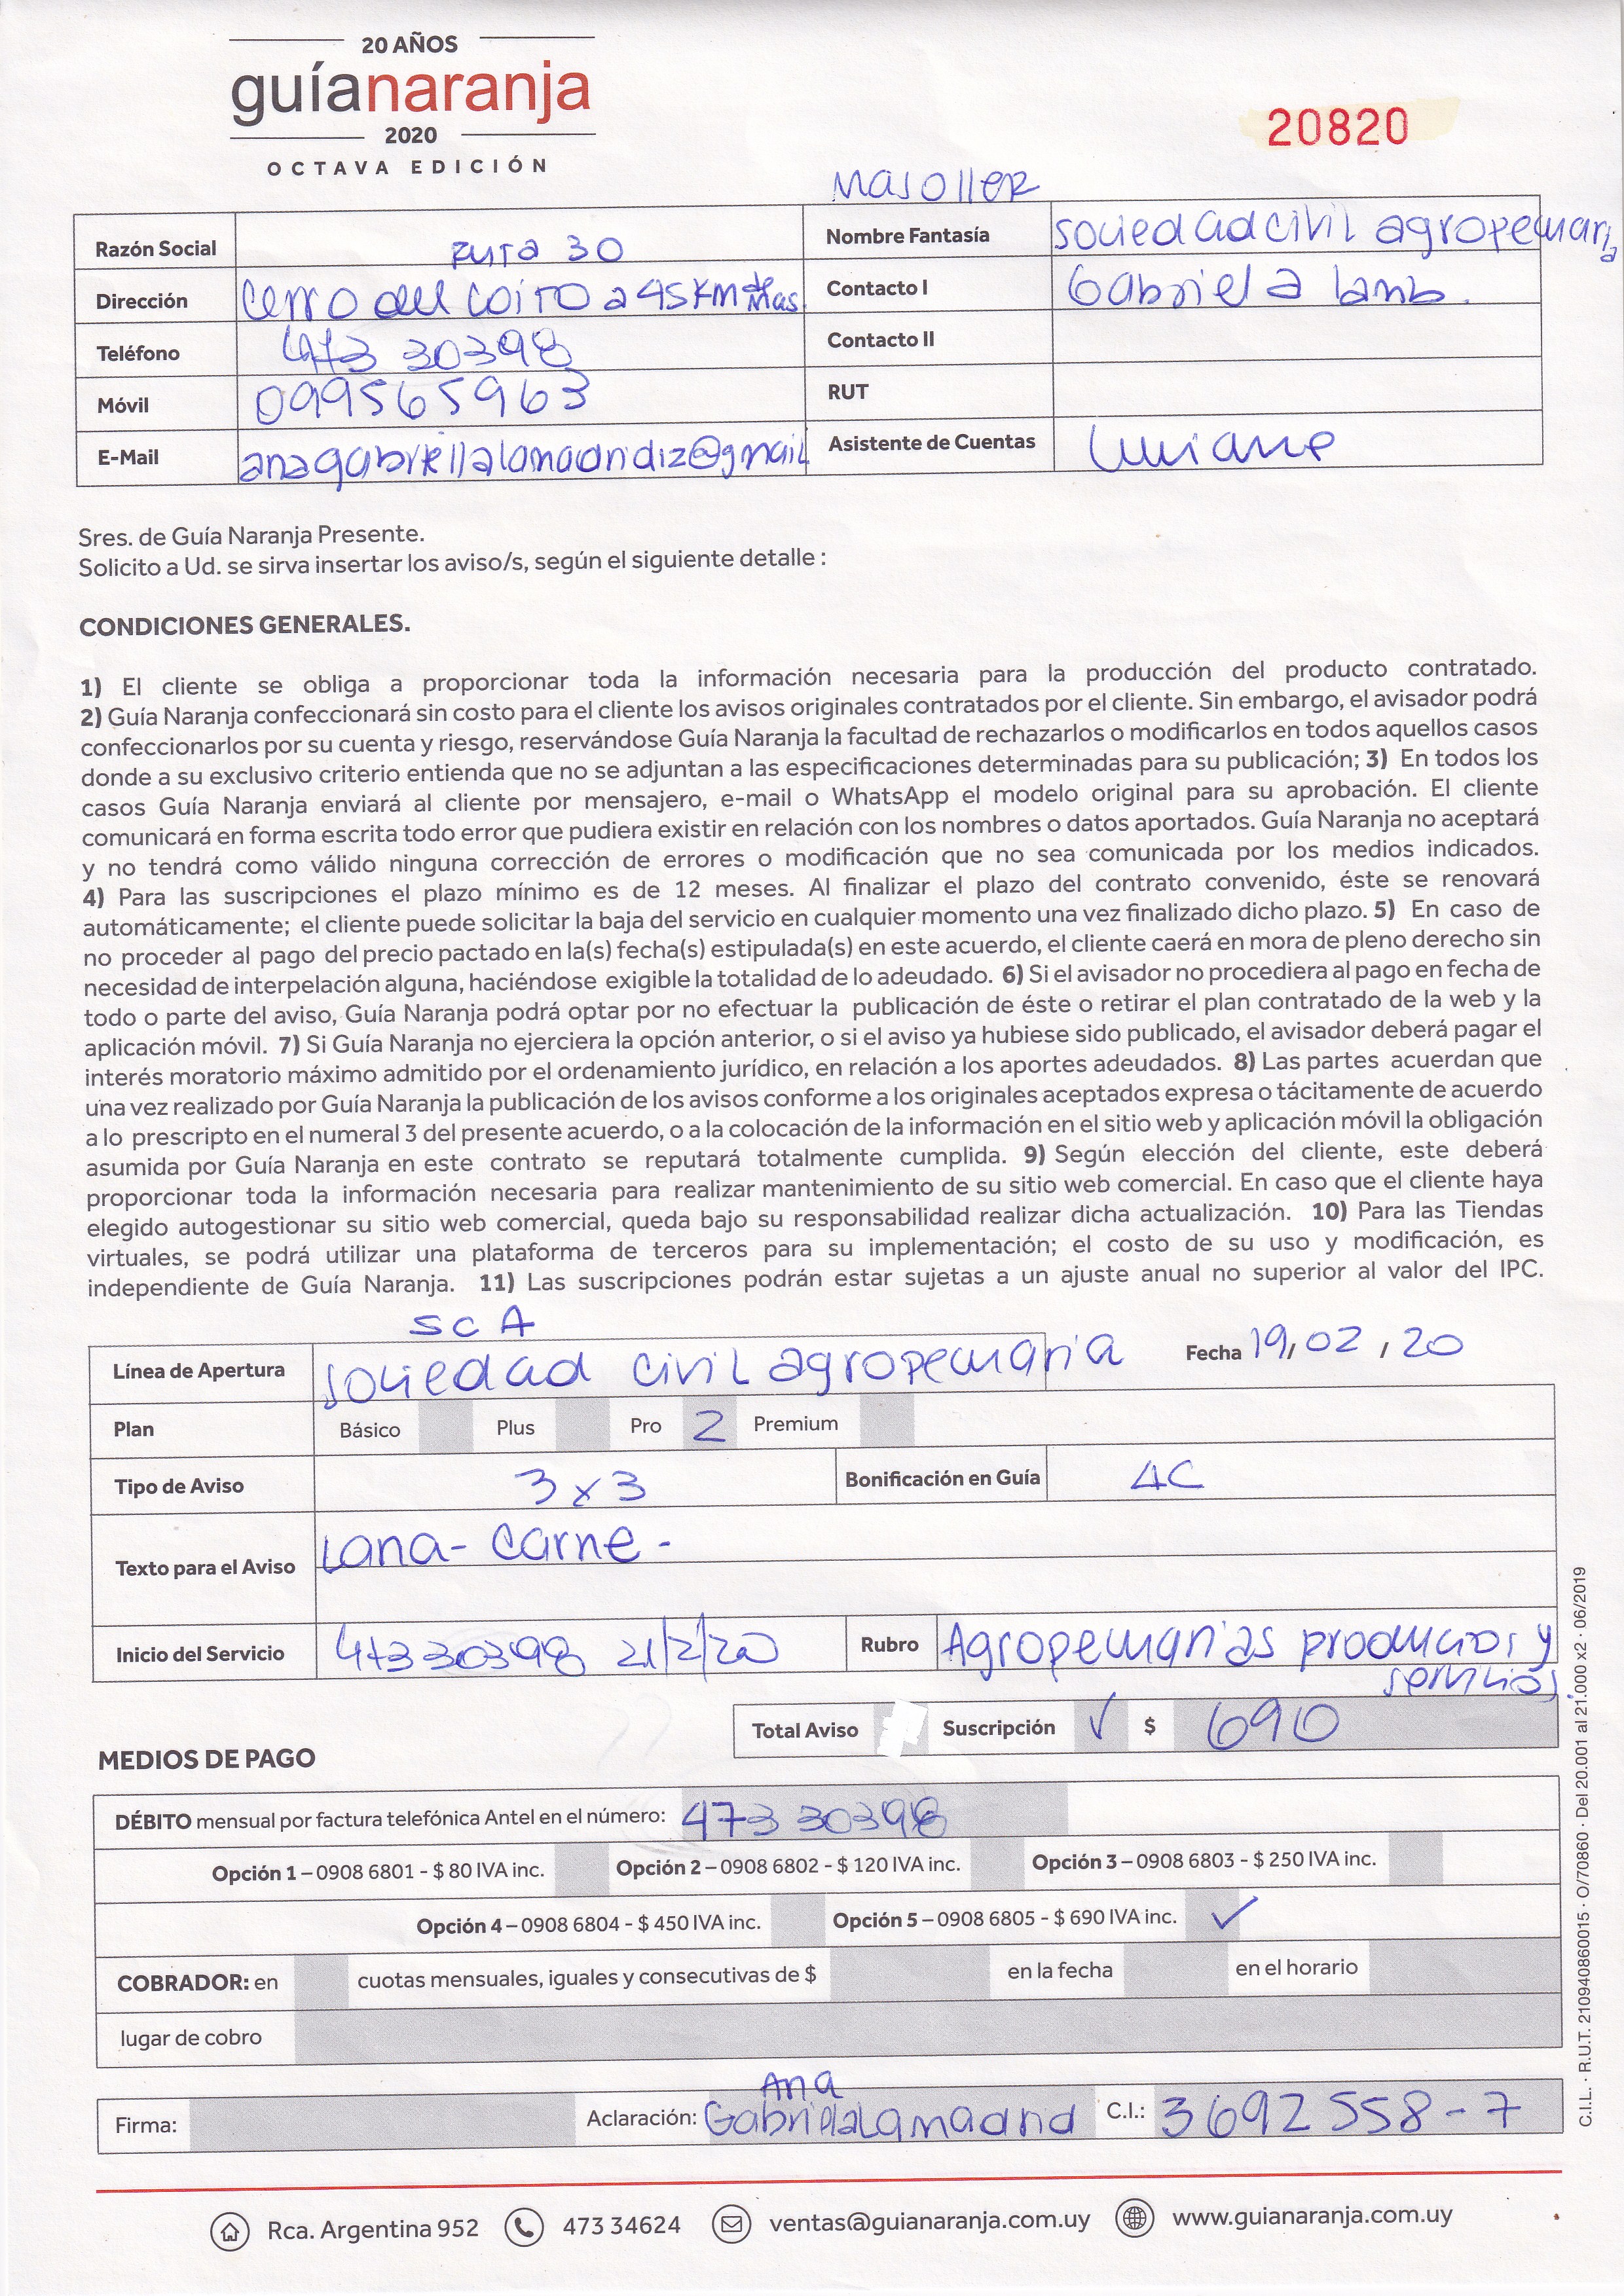 20 AÑOS
guíanaranja
2020
OCTAVA EDICIÓN
20820
Masoller
Razón Social
Nombre Fantasía sociedad civil agropecuaria
Ruta 30
Dirección Cerro del Coito a 45 Km de Mas.
Contacto I Gabriela
Teléfono 473 30398
Contacto II
Móvil 099565963
RUT
E-Mail anagabriellalamadridiz@gmail
Asistente de Cuentas
Sres. de Guía Naranja Presente.
Solicito a Ud. se sirva insertar los aviso/s, según el siguiente detalle :
CONDICIONES GENERALES.
1) El cliente se obliga a proporcionar toda la información necesaria para la producción del producto contratado.
2) Guía Naranja confeccionará sin costo para el cliente los avisos originales contratados por el cliente. Sin embargo, el avisador podrá
confeccionarlos por su cuenta y riesgo, reservándose Guía Naranja la facultad de rechazarlos o modificarlos en todos aquellos casos
donde a su exclusivo criterio entienda que no se adjuntan a las especificaciones determinadas para su publicación; 3) En todos los
casos Guía Naranja enviará al cliente por mensajero, e-mail o WhatsApp el modelo original para su aprobación. El cliente
comunicará en forma escrita todo error que pudiera existir en relación con los nombres o datos aportados. Guía Naranja no aceptará
y no tendrá como válido ninguna corrección de errores o modificación que no sea comunicada por los medios indicados.
4) Para las suscripciones el plazo mínimo es de 12 meses. Al finalizar el plazo del contrato convenido, éste se renovará
automáticamente; el cliente puede solicitar la baja del servicio en cualquier momento una vez finalizado dicho plazo. 5) En caso de
no proceder al pago del precio pactado en la(s) fecha(s) estipulada(s) en este acuerdo, el cliente caerá en mora de pleno derecho sin
necesidad de interpelación alguna, haciéndose exigible la totalidad de lo adeudado. 6) Si el avisador no procediera al pago en fecha de
todo o parte del aviso, Guía Naranja podrá optar por no efectuar la publicación de éste o retirar el plan contratado de la web y la
aplicación móvil. 7) Si Guía Naranja no ejerciera la opción anterior, o si el aviso ya hubiese sido publicado, el avisador deberá pagar el
interés moratorio máximo admitido por el ordenamiento jurídico, en relación a los aportes adeudados. 8) Las partes acuerdan que
una vez realizado por Guía Naranja la publicación de los avisos conforme a los originales aceptados expresa o tácitamente de acuerdo
a lo prescripto en el numeral 3 del presente acuerdo, o a la colocación de la información en el sitio web y aplicación móvil la obligación
asumida por Guía Naranja en este contrato se reputará totalmente cumplida. 9) Según elección del cliente, este deberá
proporcionar toda la información necesaria para realizar mantenimiento de su sitio web comercial. En caso que el cliente haya
elegido autogestionar su sitio web comercial, queda bajo su responsabilidad realizar dicha actualización. 10) Para las Tiendas
virtuales, se podrá utilizar una plataforma de terceros para su implementación; el costo de su uso y modificación, es
independiente de Guía Naranja. 11) Las suscripciones podrán estar sujetas a un ajuste anual no superior al valor del IPC.
SCA
Línea de Apertura sociedad civil agropecuaria Fecha 19/02/20
Plan Básico Plus Pro 2 Premium
Tipo de Aviso 3 x 3 Bonificación en Guía 4C
Texto para el Aviso Lana - Carne -
Inicio del Servicio 47330398 21/2/20 Rubro Agropecuarias produccion y
servicios.
Total Aviso Suscripción ✓ $ 690
MEDIOS DE PAGO
DÉBITO mensual por factura telefónica Antel en el número: 473 30398
Opción 1 – 0908 6801 - $ 80 IVA inc. Opción 2 – 0908 6802 - $ 120 IVA inc. Opción 3 – 0908 6803 - $ 250 IVA inc.
Opción 4 – 0908 6804 - $ 450 IVA inc. Opción 5 – 0908 6805 - $ 690 IVA inc. ✓
COBRADOR: en cuotas mensuales, iguales y consecutivas de $ en la fecha en el horario
lugar de cobro
Ana
Firma: Aclaración: Gabriela Lamadrid C.I.: 3692558-7
Rca. Argentina 952 473 34624 ventas@guianaranja.com.uy www.guianaranja.com.uy
C.I.L. · R.U.T. 210940860015 · O/70860 · Del 20.001 al 21.000 x2 · 06/2019